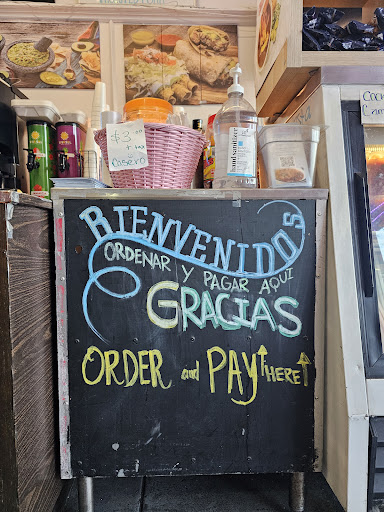 $3
+ tax
Casero
hand sanitizer
BIENVENIDOS
ORDENAR Y PAGAR AQUI
GRACIAS
ORDER and PAY HERE